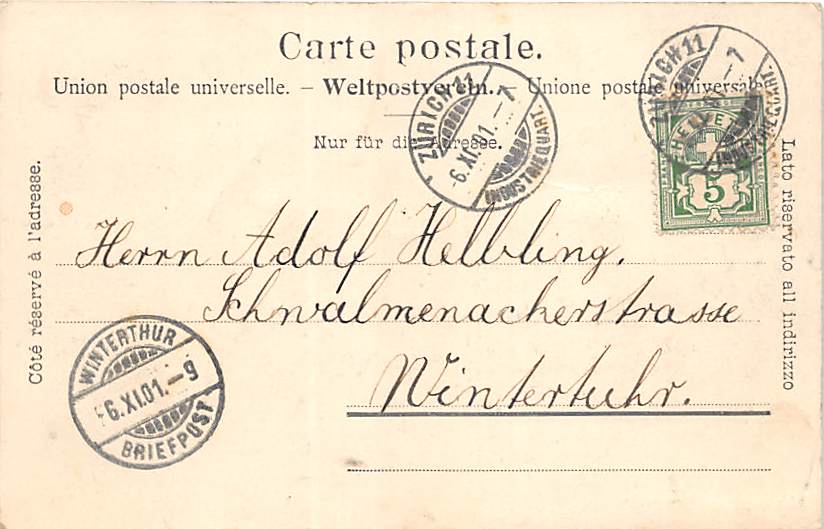 Carte postale.
Union postale universelle. – Weltpostverein. – Unione postale universale.
Nur für die Adresse.
Côté réservé à l'adresse.
Lato riservato all indirizzo
ZÜRICH 11
-6.XI.01.-7
INDUSTRIEQUART.
ZÜRICH 11
-7
HELVETIA
5
Herrn Adolf Helbling,
Schwalmenackerstrasse
Wintertuhr.
WINTERTHUR
-6.XI.01.-9
BRIEFPOST